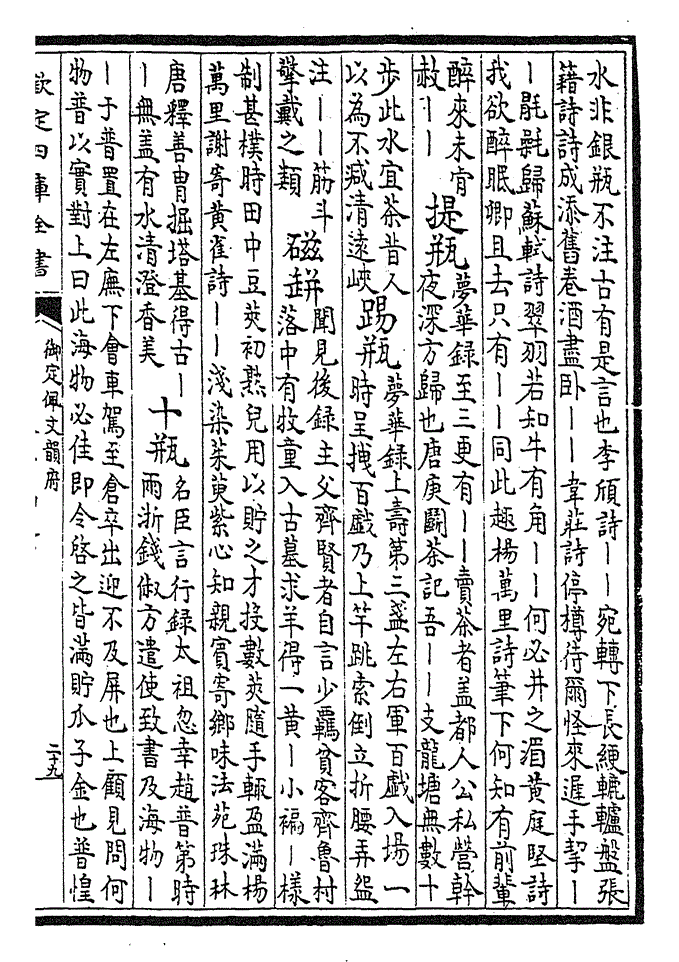 水非銀瓶不注古有是言也李頎詩｜｜宛轉下長綆轆轤盤張
籍詩詩成添舊卷酒盡卧｜｜韋莊詩停樽待爾怪來遲手挈｜
｜毷氉歸蘇軾詩翠羽若知牛有角｜｜何必井之湄黄庭堅詩
我欲醉眠卿且去只有｜｜同此趣楊萬里詩筆下何知有前輩
醉來未肯
赦｜｜
提瓶
夢華録至三更有｜｜賣茶者盖都人公私營幹
夜深方歸也唐庚鬬茶記吾｜｜支龍塘無數十
歩此水宜茶昔人
以為不减清遠峽
踢瓶
夢華録上壽第三盞左右軍百戲入場一
時呈拽百戲乃上竿跳索倒立折腰弄盌
注｜｜筋斗
擎戴之類
磁缾
聞見後録主父齊賢者自言少羈貧客齊魯村
落中有牧童入古墓求羊得一黄｜小褊｜様
制甚樸時田中豆莢初熟兒用以貯之才投數莢隨手輒盈滿楊
萬里謝寄黄雀詩｜｜淺染茱萸紫心知親賓寄鄉味法苑珠林
唐釋善胄掘塔基得古｜
｜無盖有水清澄香美
十瓶
名臣言行録太祖忽幸趙普第時
兩浙錢俶方遣使致書及海物｜
｜于普置在左廡下會車駕至倉卒出迎不及屏也上顧見問何
物普以實對上曰此海物必佳即令啓之皆滿貯瓜子金也普惶
欽定四庫全書
御定佩文韻府
二十九